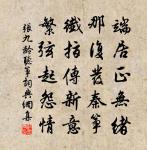 端居正無緒
那復發秦箏
纖指傳新意
繁弦起怨情
張九齡聽箏詞典網集